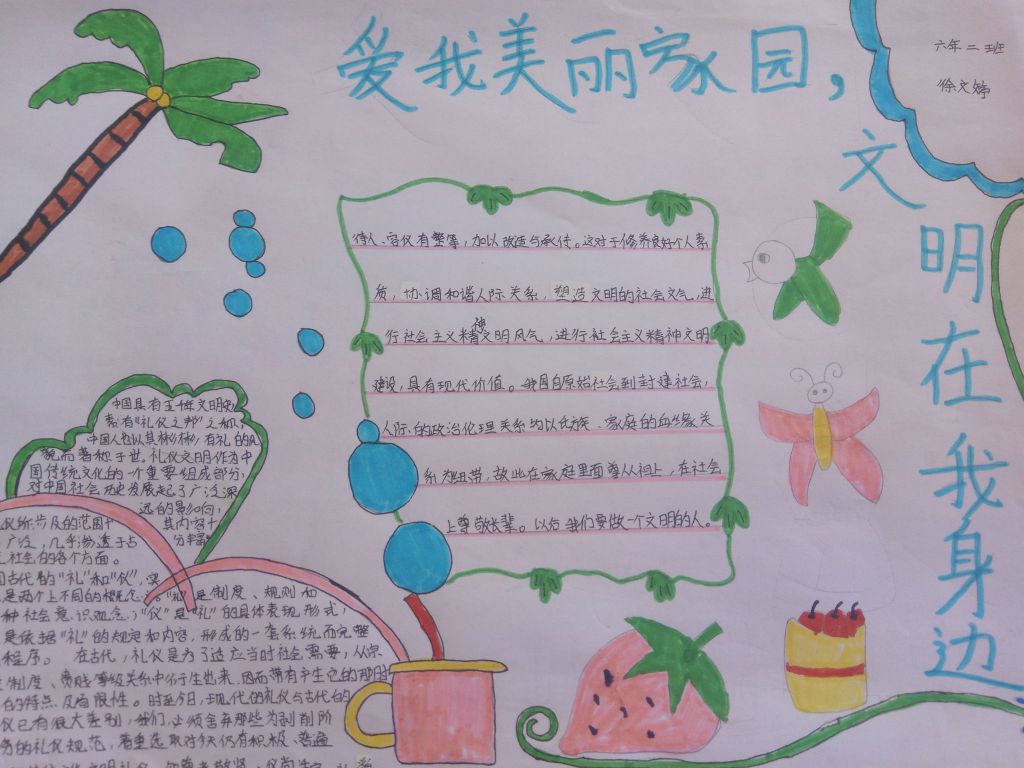 爱我美丽家园，
文明在我身边
六年二班
徐文婷
待人、容仪有整等，加以改造与承传。这对于修养良好个人素
质，协调和谐人际关系，塑造文明的社会文气，进
行社会主义精神文明风气，进行社会主义精神文明
建设，具有现代价值。我国自原始社会到封建社会，
人际的政治伦理关系均以氏族、家庭的血缘关
系为纽带，故此在家庭里面尊从祖上，在社会
上尊敬长辈。以后我们要做一个文明的人。
中国具有五千年文明史
素有“礼仪之邦”之称，
中国人也以其彬彬有礼的风
貌而著称于世。礼仪文明作为中
国传统文化的一个重要组成部分，
对中国社会历史发展起了广泛深
远的影响，
其内容十
分丰富
仪所涉及的范围十
广泛，几乎渗透于古
社会的各个方面。
古代的“礼”和“仪”，实
是两个不同的概念。“礼”是制度、规则和
种社会意识观念；“仪”是“礼”的具体表现形式，
是依据“礼”的规定和内容，形成的一套系统而完整
程序。 在古代，礼仪是为了适应当时社会需要，从宗
制度、贵贱等级关系中衍生出来，因而带有产生它的那时
的特点及局限性。时至今日，现代的礼仪与古代的
仪已有很大差别，我们必须舍弃那些为剥削阶
务的礼仪规范，着重选取对今天仍有积极、普遍